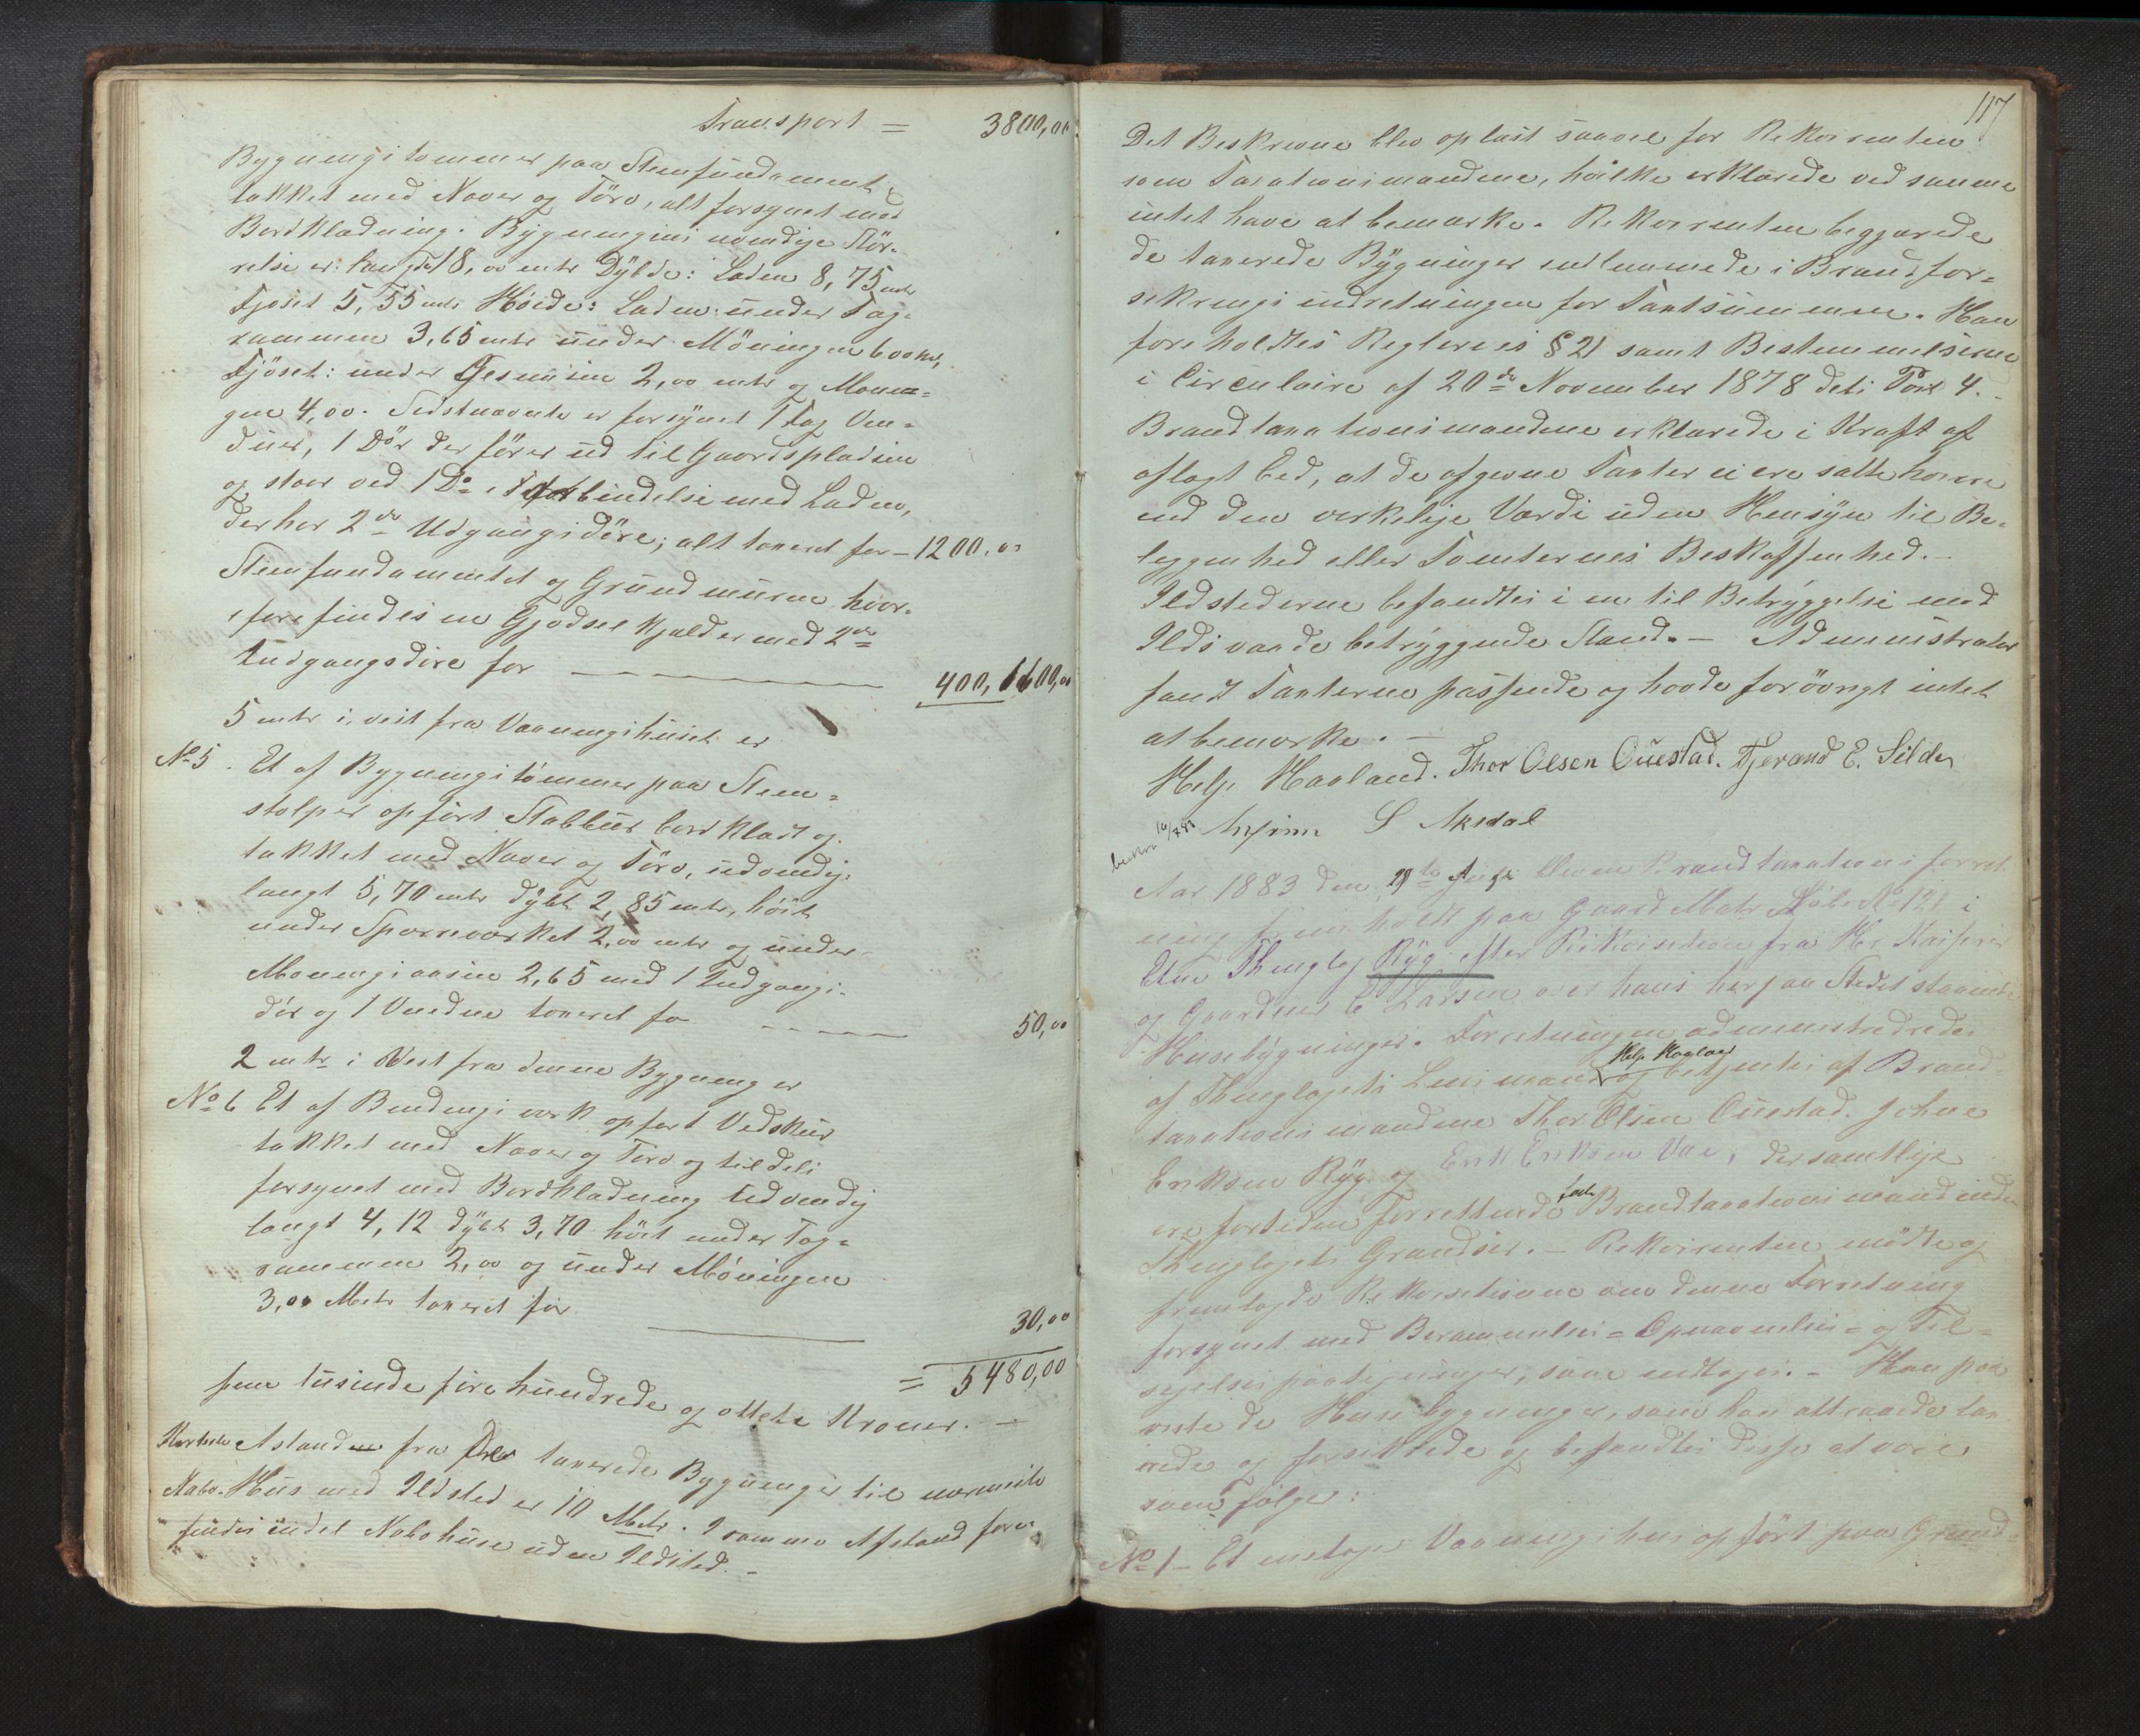 Transport = 3800,00
Bygningstømmer paa Stenfundament
takket med Næver og Törv, alt forsynet med
Bordklædning. Bygningens uvendige Stör-
relse er: længde 18,00 mtr Dybde: Laden 8,75 mtr
Fjoset 5,55 mtr Höide: Laden under Tag-
rammen 3,65 mtr under Möningen 6 00 mtr,
Fjöset: under Gesimsen 2,00 mtr og Monin-
gen 4,00. Sidstnævnte er forsynet 1 Fag Ven-
duer, 1 Dör der förer ud til Gaardspladsen
og staar ved 1 Do i Forbindelse med Laden,
der har 2de Udgangsdöre; alt taxeret for - 1200,00
Stenfundamentet og Grundmurene, hvor-
i forefindes en Gjødsel Kjelder med 2de
Indgangsdöre for 400, 1600,00
5 mtr i vest fra Vaaningshuset er
No 5. Et af Bygningstömmer paa Sten-
stolper opfört Stabbur bordklædt og
takket med Næver og Törv, udvendig
langt 5,70 mtr dybt 2,85 mtr, höit
under Sperreværket 2,00 mtr og under
Moningsaasen 2,65 med 1 Indgangs-
dör og 1 Vindue taxeret for 50,00
2 mtr i Vest fra denne Bygning er
No 6 Et af Bindingsverk opfört Vedskur
takket med Næver og Törv og tildels
forsynet med Bordklædning udvendig
langt 4,12 dybt 3,70 höit under Tag-
rammen 2,00 og under Möningen
3,00 Metr taxeret for 30,00
= 5480,00
fem tusinde fire hundrede og otteti Kroner. -
Korteste Afstand fra de taxerede Bygninger til nærmeste
Nabo-Hus med Ildsted er 10 Metr. I samme Afstand fore-
findes intet Nabohuse uden Ildsted. -
117
Det Beskrevne blev oplæst saavel for Rekvirenten
som Taxationsmændene, hvilke erklærede ved samme
intet have at bemærke. Rekvirenten begjærede
de taxerede Bygninger indlemmede i Brandfor-
sikringsindretningen for Taxtsummene. Han
foreholdtes Reglernes § 21 samt Bestemmelserne
i Circulaire af 20de November 1878 dets Post 4.
Brandtaxationsmændene erklærede i Kraft af
aflagt Eed, at de afgivne Taxter ei ere satte höiere
end den virkelige Værdi uden Hensyn til Be-
leggenhed eller Tomternes Beskaffenhed. -
Ildstederne befandtes i en til Betryggelse mod
Ildsvaade betryggende Stand. - Administrator
fandt Taxterne passende og havde forövrigt intet
at bemærke. -
Helje Haaland. Thor Olsen Ouestad. Tjerand E. Silde
Anfinn S Aksdal
Aar 1883 den Juli blev en Brandtaxationsforret
ning fremholdt paa Gaard Matr Löbe No 121 i
Etne Thinglag Ryg efter Rekvisition fra Hr
og Gaardmand E Larsen over hans her paa Stedet staaende
Husebygninger. Forretningen administreredes
af Thinglagets Lensmand Helje Haaland og betjentes af Brand
taxationsmændene Thor Olsen Ouestad. Johne
Eriksen Ryg og Erik Eriksen Vae, der samtlige
ere fortiden forrettende faste Brandtaxationsmænd inden
Thinglagets Grændser. - Rekvirenten mödte og
fremlagde Rekvisitionen om denne Forretning
forsynet med Berammelses- Opnævnelses- og Til-
sigelsespaategninger, som indtages. - Han paa
viste de Husebygninger, som han attraaede tax
erede og forsikrede og befandtes disse at være
som fölger:
No 1 - Et enetages Vaaningshus opfört paa Grund-